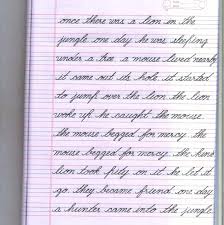 once there was a lion in the
jungle one day he was sleeping
under a tree a mouse lived nearby
it came out its hole it started
to jump over the lion the lion
woke up he caught the mouse
the mouse begged for mercy the
mouse begged for mercy the kind
lion took pity on it he let it
go they became friend one day
a hunter came into the jungle